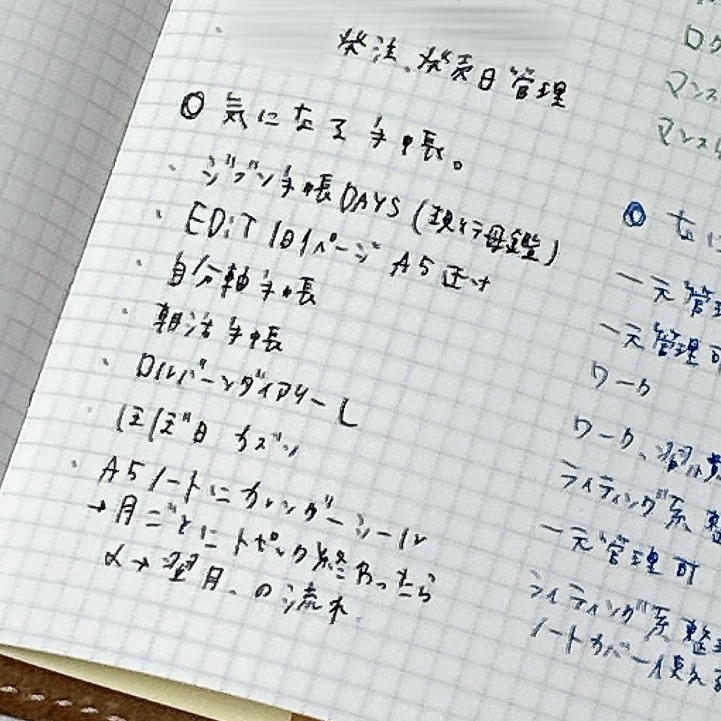 発注、発売日管理
◎ 気になる手帳。
・ジブン手帳DAYS (現行母艦)
・EDiT 1日1ページ A5正寸
・自分軸手帳
・朝活手帳
・ロルバーンダイアリーL
・ほぼ日カズン
・A5ノートにカレンダーシール
→月ごとにトピック終わったら
→翌月、の流れ
ログ
マンス
マンス
◎ なに
一元管理
一元管理可
ワーク
ワーク、習
ライティング系、整
一元管理可
ライティング系、整理
ノートカバー使える